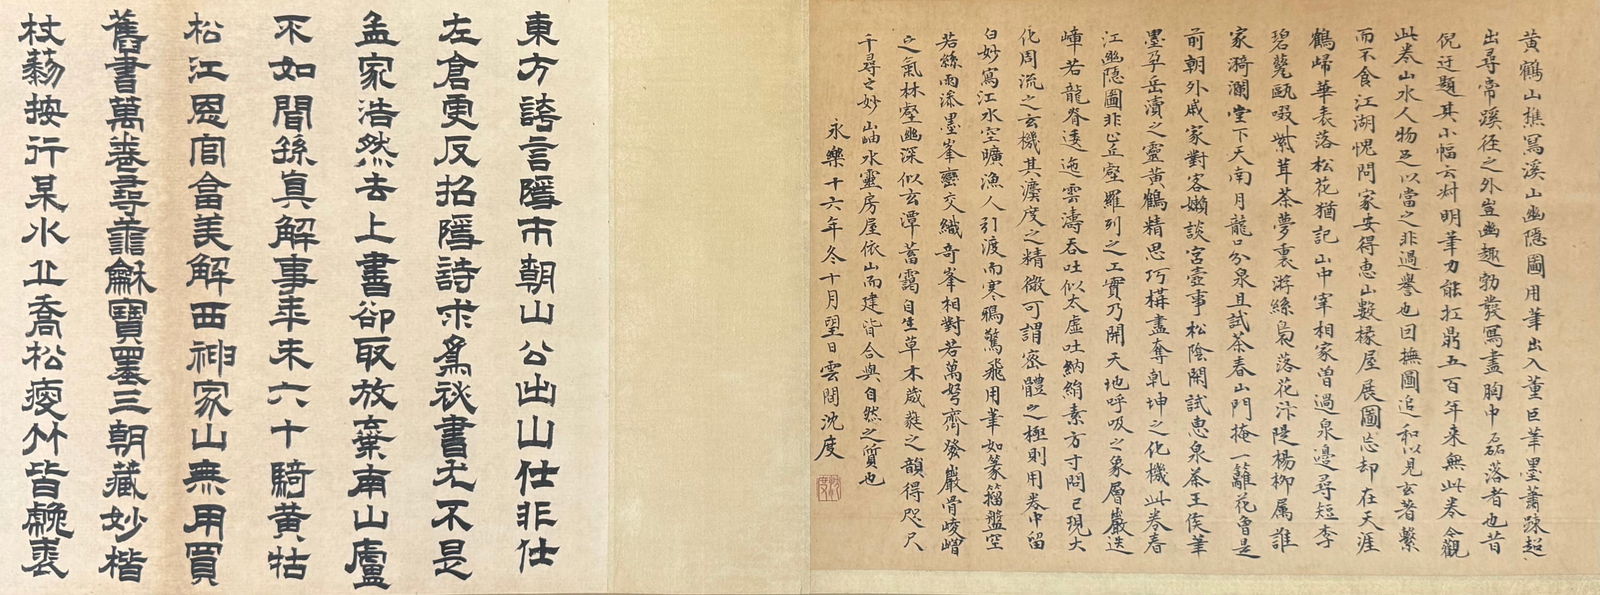 黄鶴山樵寫溪山幽隱圖用筆出入董巨筆墨蕭踈超
出尋常蹊徑之外豈幽趣勃發寫盡胸中磊落者也昔
倪迂題其小幅云叔明筆力能扛鼎五百年来無此卷令觀
此卷山水人物足以當之非過譽也曰撫圖追和以見玄著繫
而不食江湖愧問家安得惠山數椽屋展圖忘却在天涯
鶴歸華表落松花猶記山中宰相家曽過泉邊尋短李
碧甃甌啜紫茸茶夢裏游絲梟落花汴隄楊柳属誰
家漪瀾堂下天南月龍口分泉且試茶春山門掩一籬花曾是
前朝外戚家對客嬾談宮壺事松陰閑試恵泉茶王侯筆
墨孕岳瀆之靈黄鶴精思巧構盡奪乹坤之化機此卷春
江幽隱圖非止丘壑羅列之工實乃開天地呼吸之象層巖迭
嶂若龍脊逶迤雲濤吞吐似太虚吐納絹素方寸間已現大
化周流之玄機其濃度之精微可謂密體之極則用卷中留
白妙寫江水空曠漁人引渡而寒鴉驚飛用筆如篆籀盤空
若絲雨添墨峯巒交織奇峯相對若萬弩齊發巖骨崚嶒
之氣林壑幽深似玄潭蓄靄自生草木葳蕤之韻得咫尺
千尋之妙山岫水靈房屋依山而建皆合與自然之質也
永樂十六年冬十月望日雲間沈度
東方誇言隱市朝山公出山仕非仕
左倉更反招隱詩求爲祕書尤不是
孟家浩然去上書卻取放棄南山盧
不如間孫真解事年未六十騎黄牯
松江恩官畲美解西神家山無用買
舊書萬卷尋龢寶墨三朝藏妙楷
杖藜按行某水丘喬松瘦竹皆